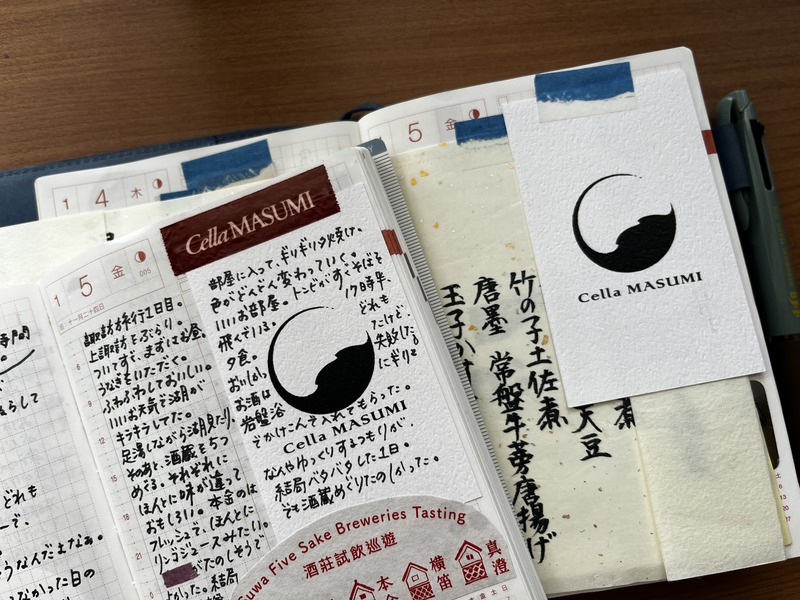 1
4
木
1
5
金
005
旧・十一月二十四日
諏訪旅行1日目。
上諏訪をぶらり。
ついてすぐ、まずはお昼。
うなぎをいただく。
ふわふわしておいしい。
いいお天気で湖が
キラキラしてた。
足湯しながら湖見たり。
そのあと、酒蔵を5つ
めぐる。それぞれに
ほんとに味が違って
おもしろい。本金のは
フレッシュで、ほんとに
リンゴジュースみたい。
がたのしそうで
よかった。結局
Cella MASUMI
部屋に入って、ギリギリ夕焼け。
色がどんどん変わっていく。
いいお部屋。トンビがすぐそばを
飛んでいる。
17時半、
夕食。
どれも
おいしかっ
たけど、
お酒は
失敗した。
岩盤浴
にギリギ
でかけこんで入れてもらった。
Cella MASUMI
なんかゆっくりするつもりが、
結局バタバタした1日。
でも酒蔵めぐりたのしかった。
Suwa Five Sake Breweries Tasting
酒莊試飲巡遊
本金
横笛
真澄
5
金
Cella MASUMI
竹の子土佐煮
唐墨 常盤牛蒡唐揚げ
玉子か
大豆
煮
時間
らして
どれも
ーで、
うなんだよなぁ。
なかった日の